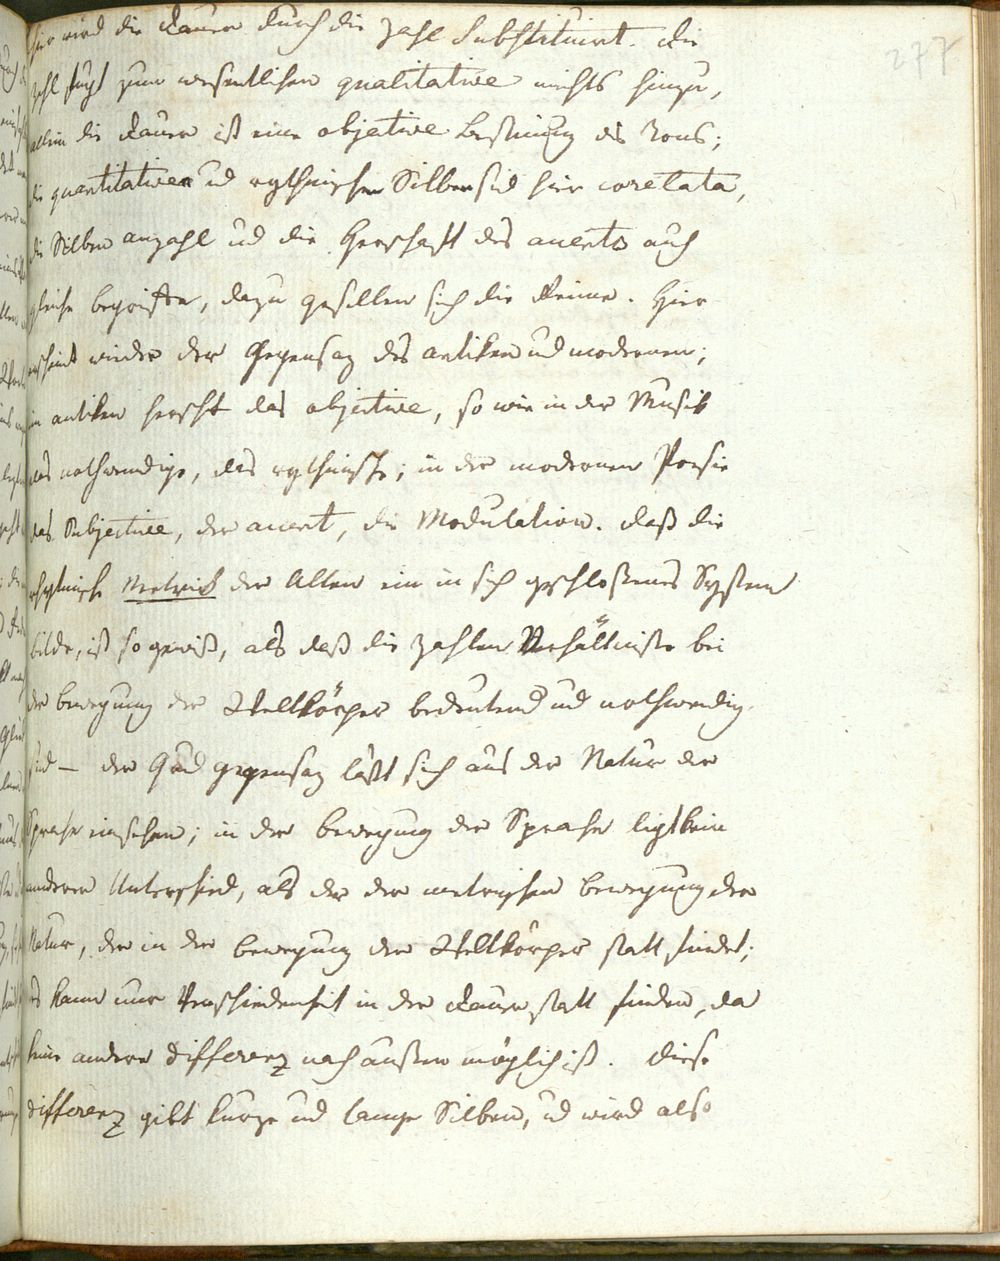 277
hier wird die Dauer durch die Zahl Substituirt. die
Zahl fügt zum wesentlichen qualitative nichts hinzu,
allein die Dauer ist eine objective Bestimung des Tons;
die quantitativen und rythmischen Silben sid hier corelata,
die Silben anzahl ud die Herschaft des accents auch
gleiche begriffe, dazu gesellen sich die Reime. Hier
erscheint wieder der Gegensaz des antiken ud modernen;
im antiken herscht das objective, so wie in der Musik
das nothwendige, das rythmische; in der modernen Poesie
das Subjective, der accent, die Modulation. daß die
rhytmische Metrick der Alten ein in sich geschloßenes System
bilde, ist so gewiß, als daß die Zahlen Verhältniße bei
der bewegung der Weltkörper bedeutend ud nothwendig
sind – der Grud gegensaz läßt sich aus der Natur der
Sprache einsehen; in der bewegung der Sprache ligt kein
anderer Unterschied, als der der metrischen bewegung der
Natur, der in der bewegung der Weltkörper statt findet;
es kann nur Verschiedenheit in der Dauer statt finden, da
keine andere differenz nach außen möglich ist. Diese
differenz gibt kurze und lange Silben, ud wird also